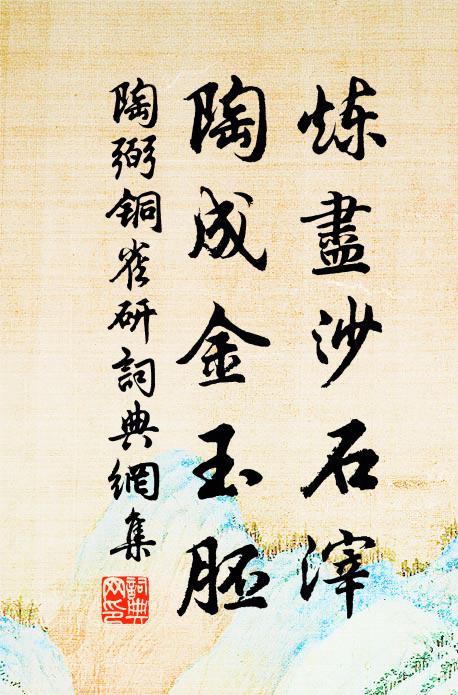 炼盡沙石滓
陶成金玉胚
陶弼銅雀研詞典網集